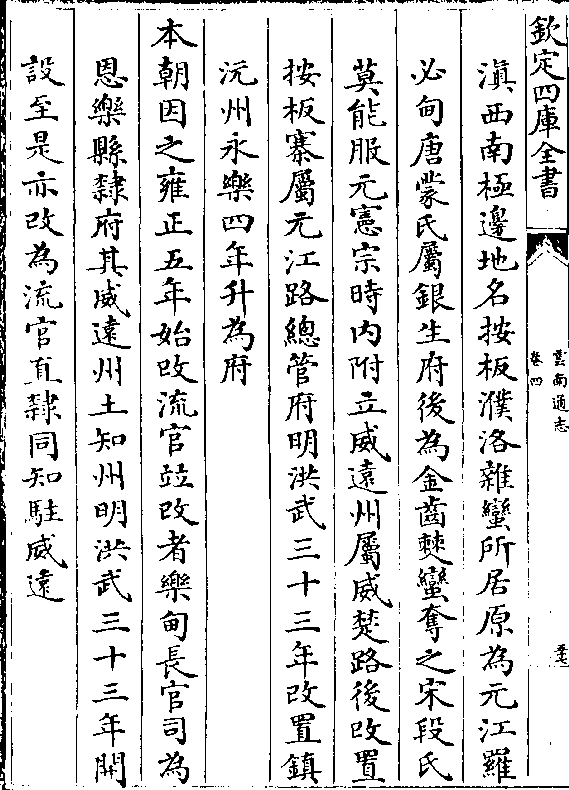 欽定四庫全書
雲南通志
卷四
滇西南極邊地名按板濮洛雜蠻所居原為元江羅
必甸唐蒙氏屬銀生府後為金齒僰蠻奪之宋段氏
莫能服元憲宗時内附立威遠州屬威楚路後改置
按板寨屬元江路總管府明洪武三十三年改置鎮
沅州永樂四年升為府
本朝因之雍正五年始改流官竝改者樂甸長官司為
恩樂縣隸府其威遠州土知州明洪武三十三年開
設至是亦改為流官直隸同知駐威遠